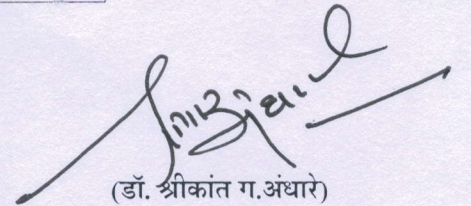 (डॉ. श्रीकांत ग.अंधारे)